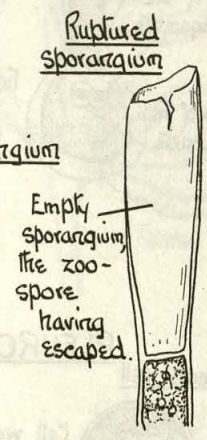 Ruptured
sporangium
ngium
Empty
sporangium,
the zoo-
spore
having
escaped.